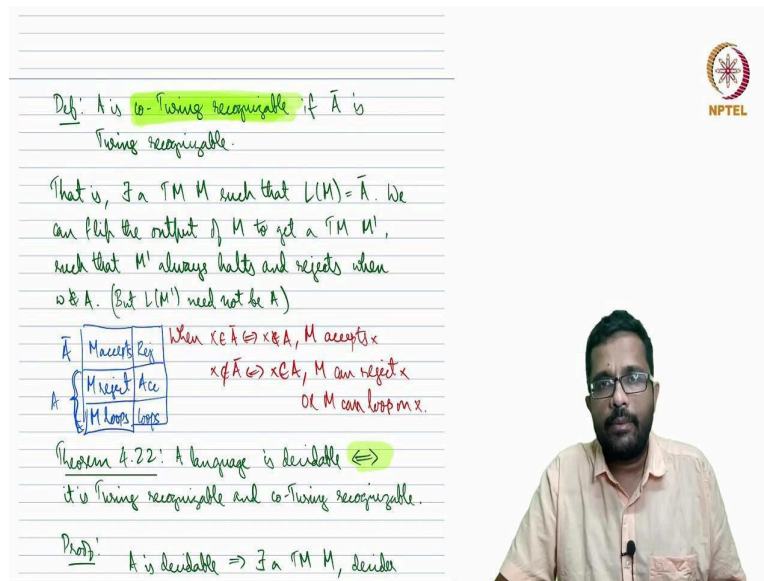 Def: A is co-Turing recognizable if Ā is
Turing recognizable.
NPTEL
That is, ∃ a TM M such that L(M) = Ā. We
can flip the output of M to get a TM M',
such that M' always halts and rejects when
w ∉ A. (But L(M') need not be A)
Ā M accepts Rej
A M reject Acc
M loops loops
When x ∈ Ā ⇔ x ∉ A, M accepts x
x ∉ Ā ⇔ x ∈ A, M can reject x
OR M can loop on x.
Theorem 4.22: A language is decidable ⇔
it is Turing recognizable and co-Turing recognizable.
Proof:
A is decidable ⇒ ∃ a TM M, decider